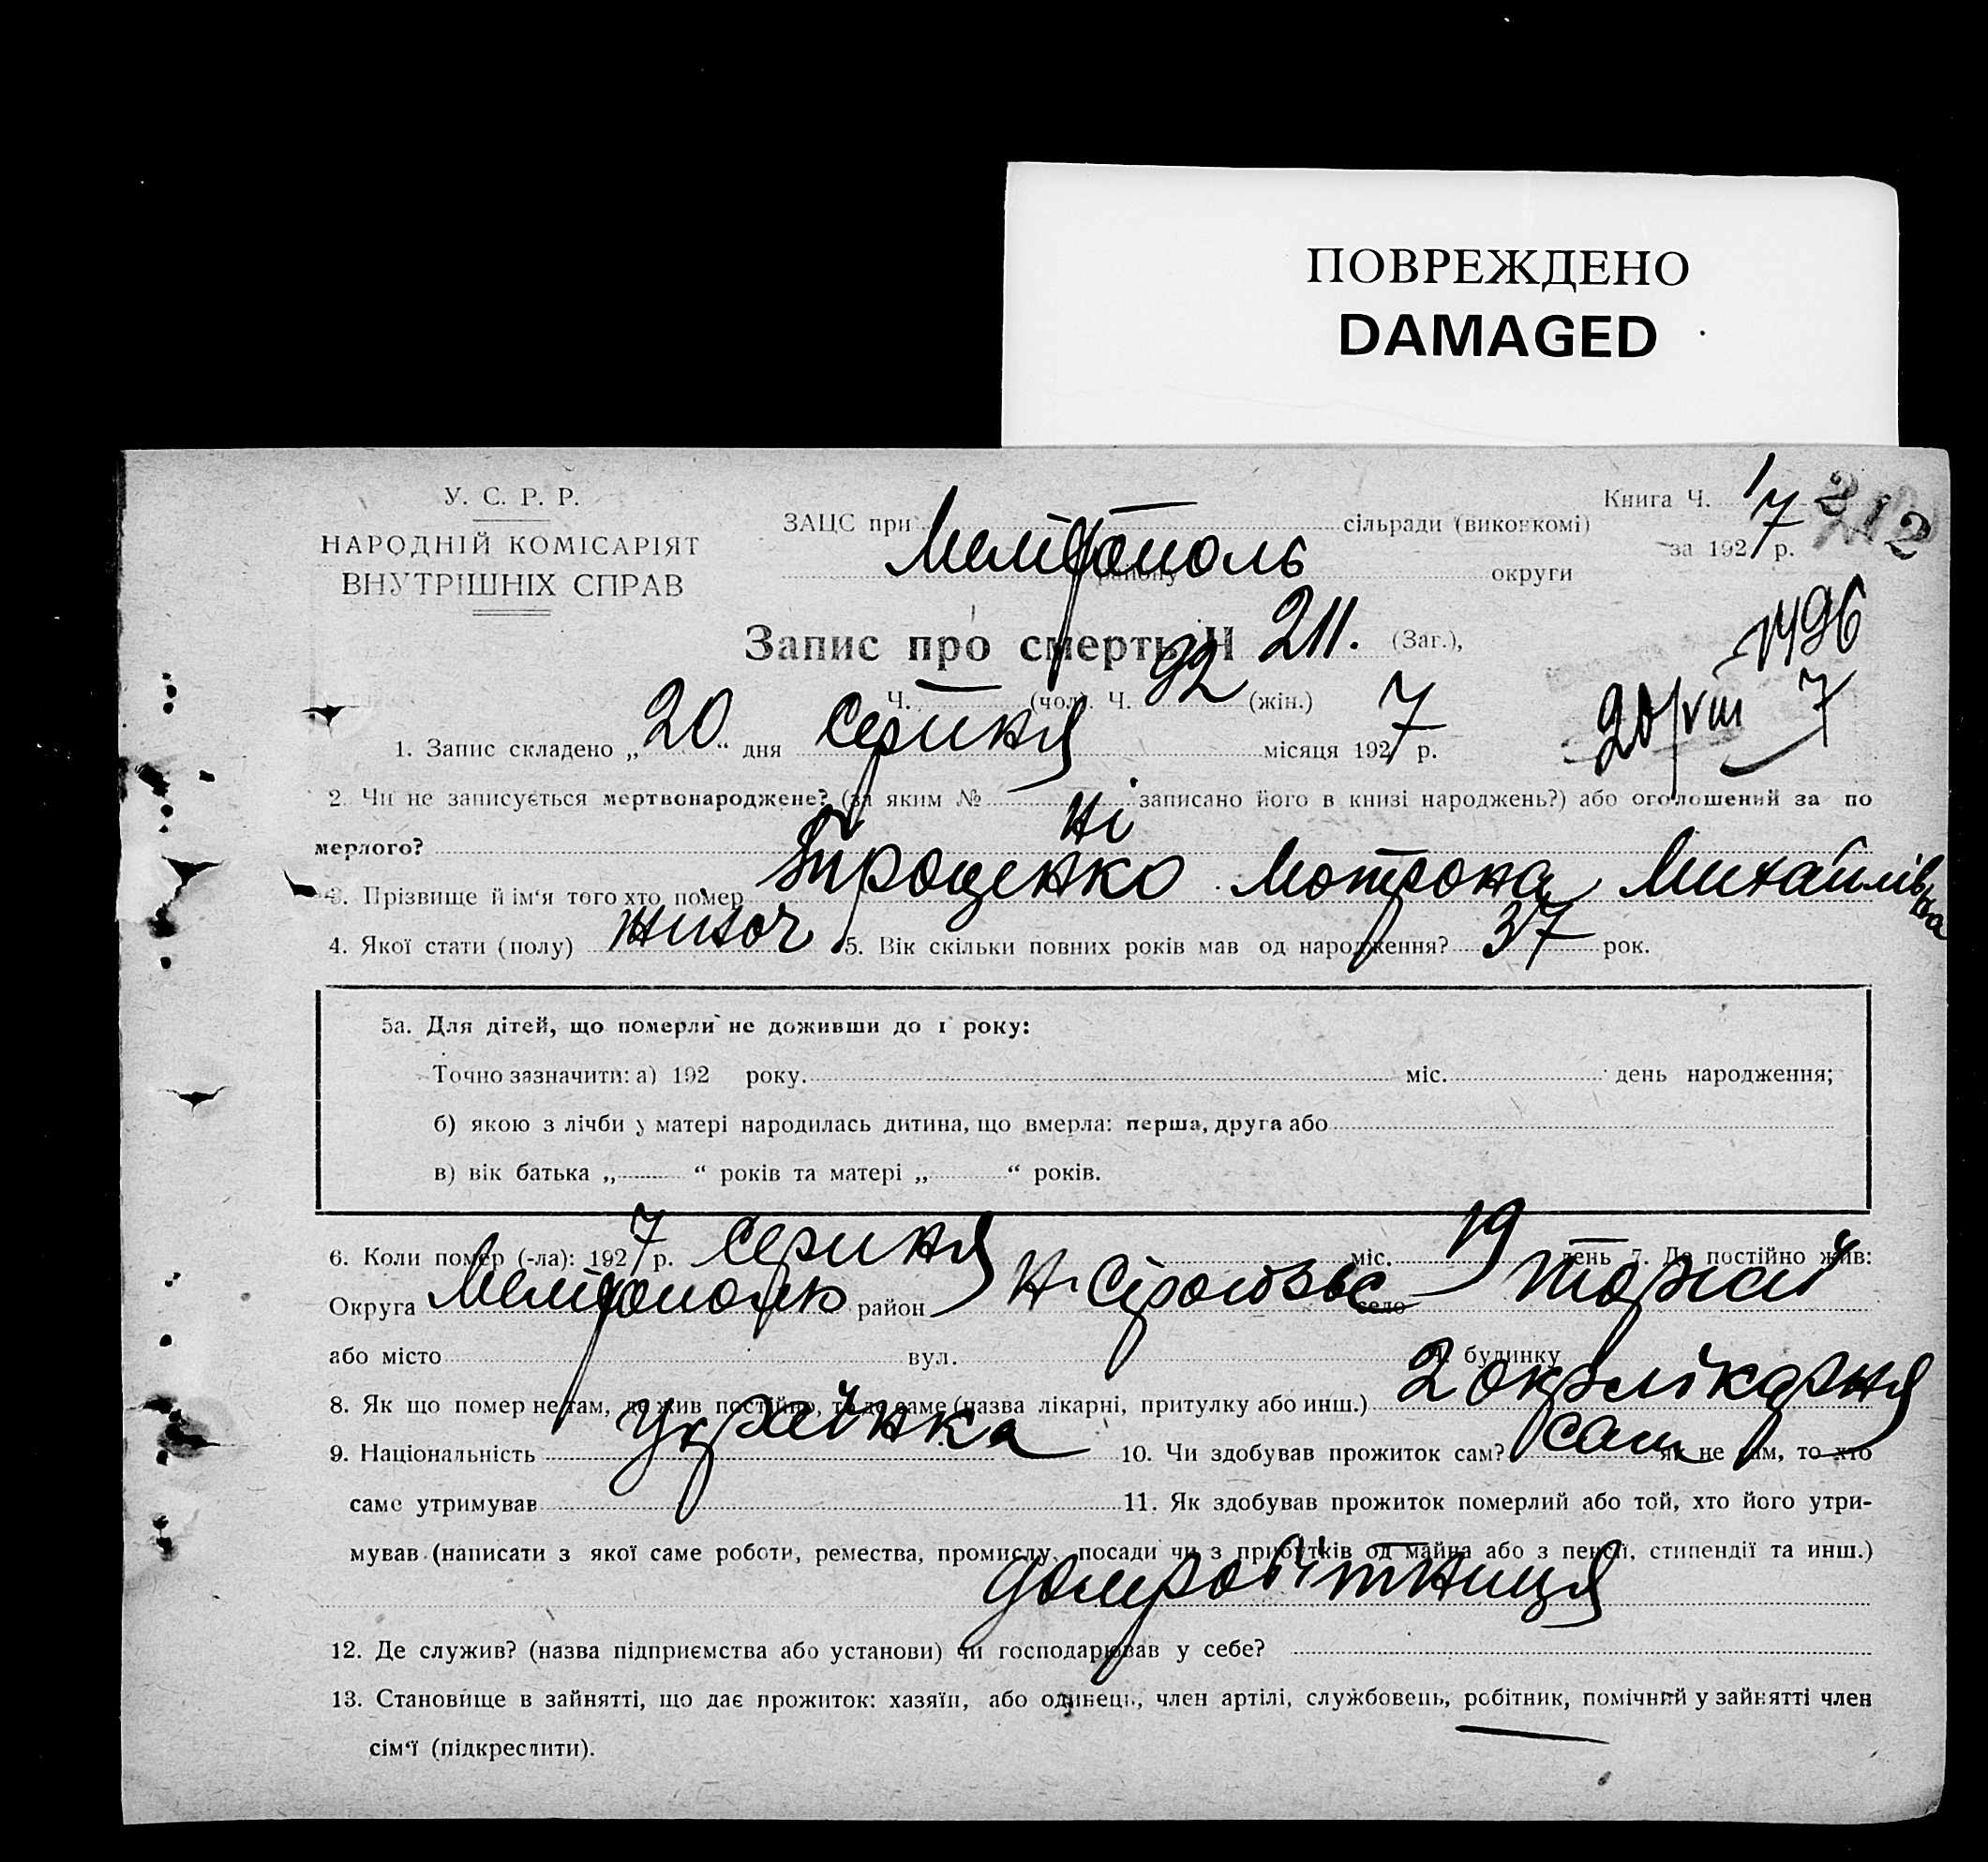 ПОВРЕЖДЕНО
DAMAGED
У. С. Р. Р.
НАРОДНІЙ КОМІСАРІЯТ
ВНУТРІШНІХ СПРАВ
Книга Ч. 1
212
за 1927 р.
ЗАЦС при сільради (виконкомі)
Мелітополь району округи
1496
Запис про смерть Ч 211. (Заг.),
Ч. — (чол). Ч. 92 (жін.)
20/VIII 7
1. Запис складено „20“ дня Серпня місяця 1927 р.
2. Чи не записується мертвонароджене? (за яким № записано його в книзі народжень?) або оголошений за по
мерлого? Ні
3. Прізвище й ім'я того хто помер Троценко Мотрона Михайлівна
4. Якої стати (полу) жіноч 5. Вік скільки повних років мав од народження? 37 рок.
5а. Для дітей, що померли не доживши до 1 року:
Точно зазначити: а) 192 року. міс. день народження;
б) якою з лічби у матері народилась дитина, що вмерла: перша, друга або
в) вік батька „ “ років та матері „ “ років.
6. Коли помер (-ла): 1927 р. Серпня міс. 19 день 7. Де постійно жив:
Округа Мелітополь район Н-Сірогозьс село
або місто вул. Ч. будинку
8. Як що помер не там, де жив постійно, то де саме (назва лікарні, притулку або инш.) 2 окрлікарня
9. Національність Українка 10. Чи здобував прожиток сам? сам як не сам, то хто
саме утримував 11. Як здобував прожиток померлий або той, хто його утри-
мував (написати з якої саме роботи, ремества, промислу, посади чи з прибутків од майна або з пенсії, стипендії та инш.)
домробітниця
12. Де служив? (назва підприємства або установи) чи господарював у себе?
13. Становище в зайнятті, що дає прожиток: хазяїн, або одинець, член артілі, службовець, робітник, помічний у зайнятті член
сім'ї (підкреслити).